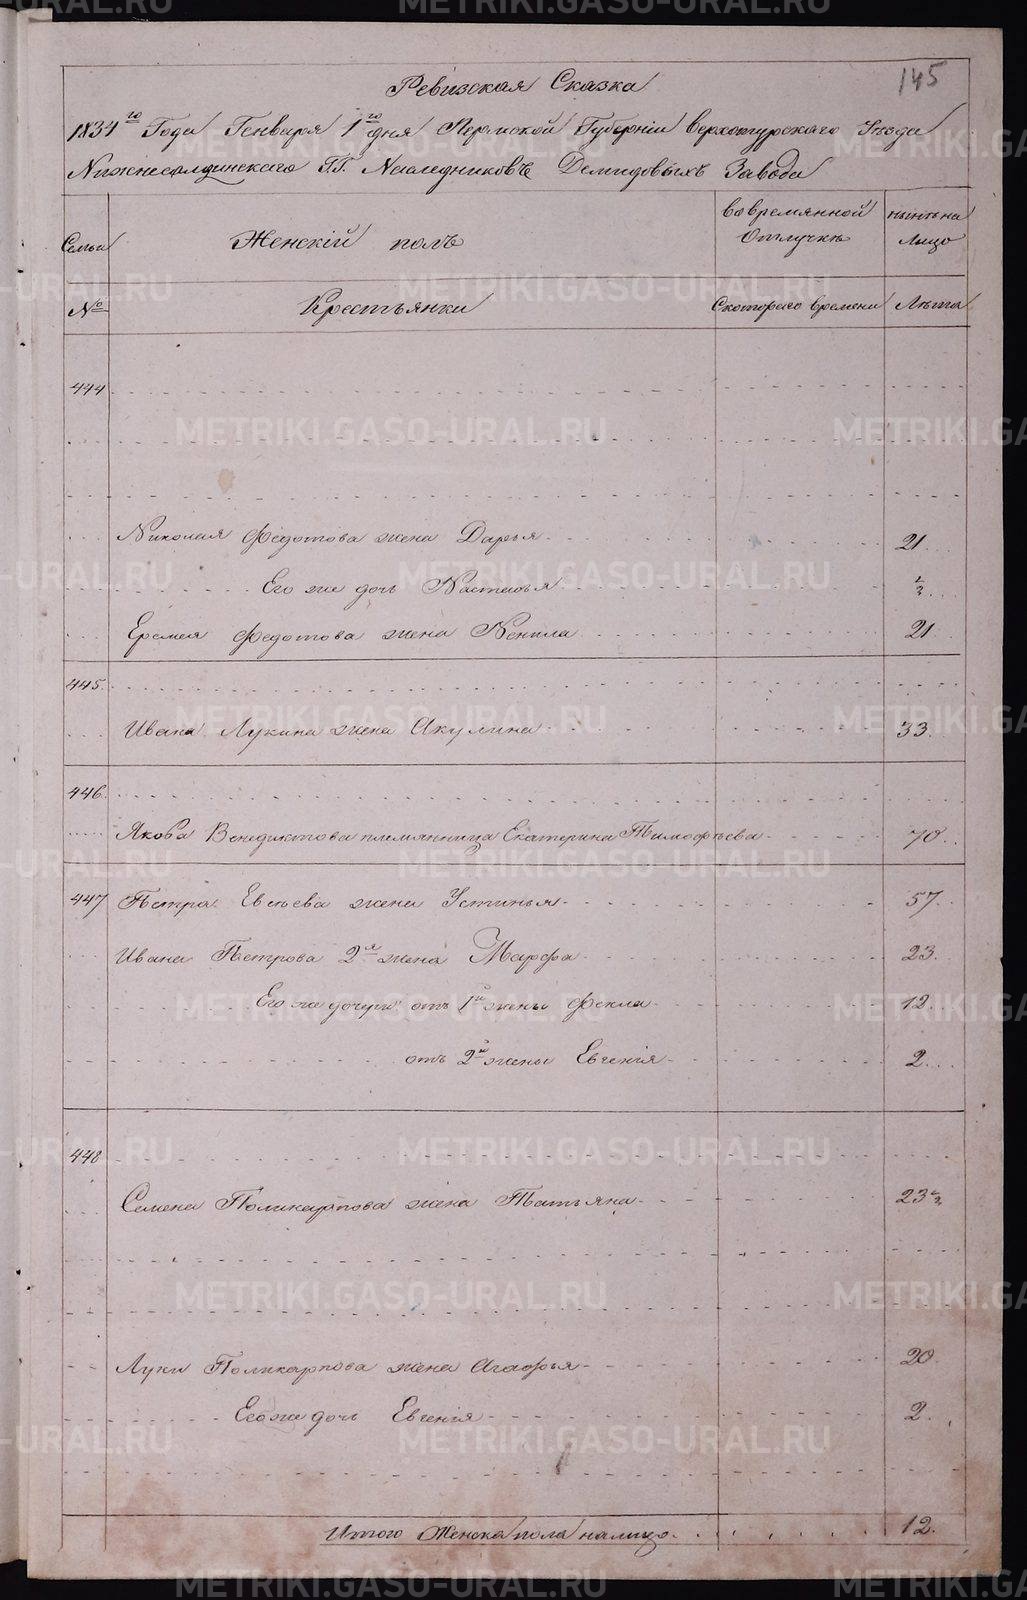 145
Ревизская Сказка
1834го Года Генваря 1го дня Пермской Губернiи верхотурскаго Уезда
Нижнесалдинскаго Г.Г. Наследниковъ Демидовыхъ Завода
Семьи
Женскiй полъ
во временной Отлучкѣ
нынѣ на Лицо
№
Крестьянки
Скотораго времени
Лѣта
444
Николая Федотова жена Дарья 21
Его же дочь Настасья 1/2
Еремея Федотова жена Ненила 21
445.
Ивана Лукина жена Акулина 33
446.
Якова Венедиктова племянница Екатерина Тимофѣева 70
447 Петра Евсѣева жена Устинья 57
Ивана Петрова 2я жена Марфа 23
Его же дочери отъ 1й жены Фекла 12
отъ 2й жены Евгенiя 2
448
Семена Поликарпова жена Татьяна 23
Луки Поликарпова жена Агафья 20
Его же дочь Евгенiя 2
Итого Женска пола налицо 12.
METRIKI.GASO-URAL.RU